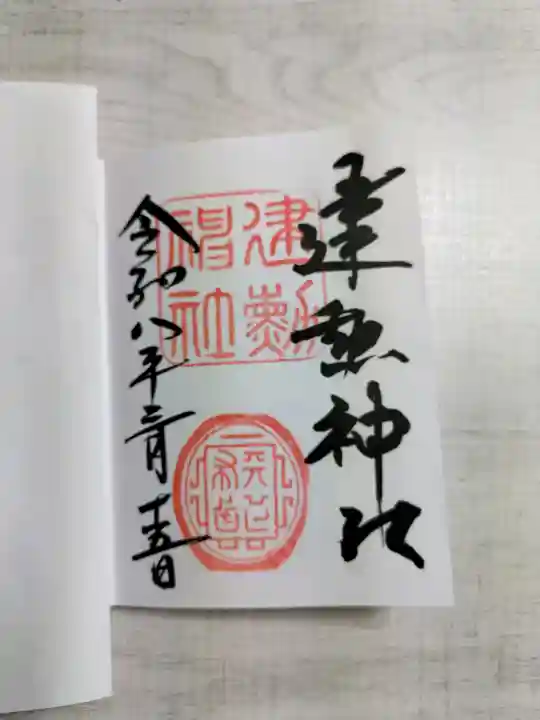 建勲神社
建勲
神社
令和八年三月十五日